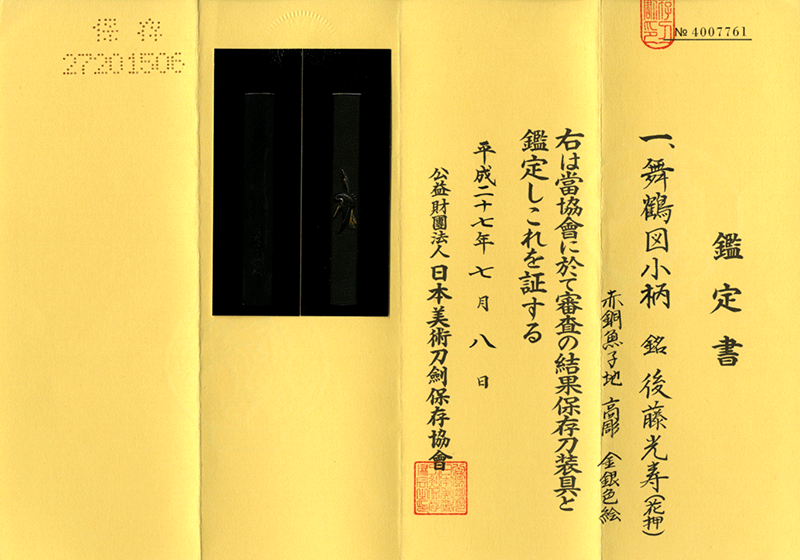 № 4007761
鑑定書
一、舞鶴図小柄 銘 後藤光寿(花押)
赤銅魚子地 高彫 金銀色絵
右は當協會に於て審査の結果保存刀装具と
鑑定しこれを証する
平成二十七年七月八日
公益財團法人 日本美術刀劍保存協會
保存
27201506